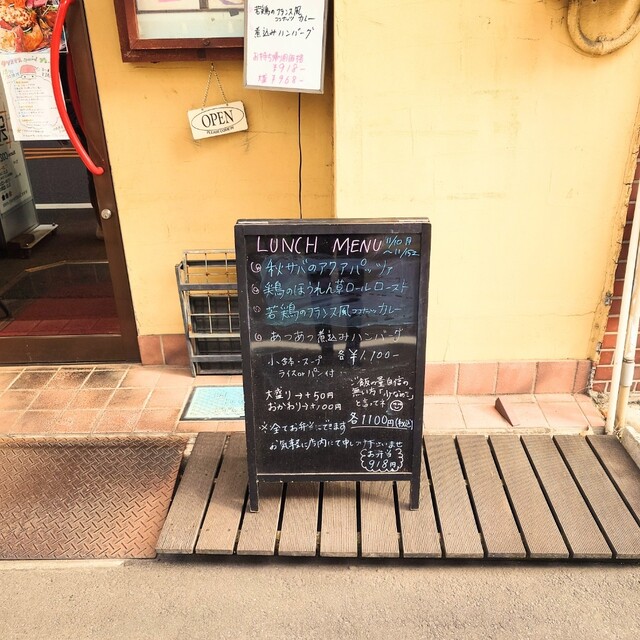 若鶏のフランス風
ココナッツカレー
煮込みハンバーグ
¥918-
OPEN
LUNCH MENU 11/10 月
秋サバのアクアパッツァ
鶏のほうれん草ロールロースト
若鶏のフランス風ココナッツカレー
あつあつ煮込みハンバーグ
小鉢・スープ 各¥1,100-
ライスorパン付
大盛り→+50円
おかわり→+100円
ご飯の量自信の
無い方「少なめ」
と言って
各1100円(税込)
※全てお弁当にできます
お気軽に店内にて申し付け下さいませ
お弁当
918円